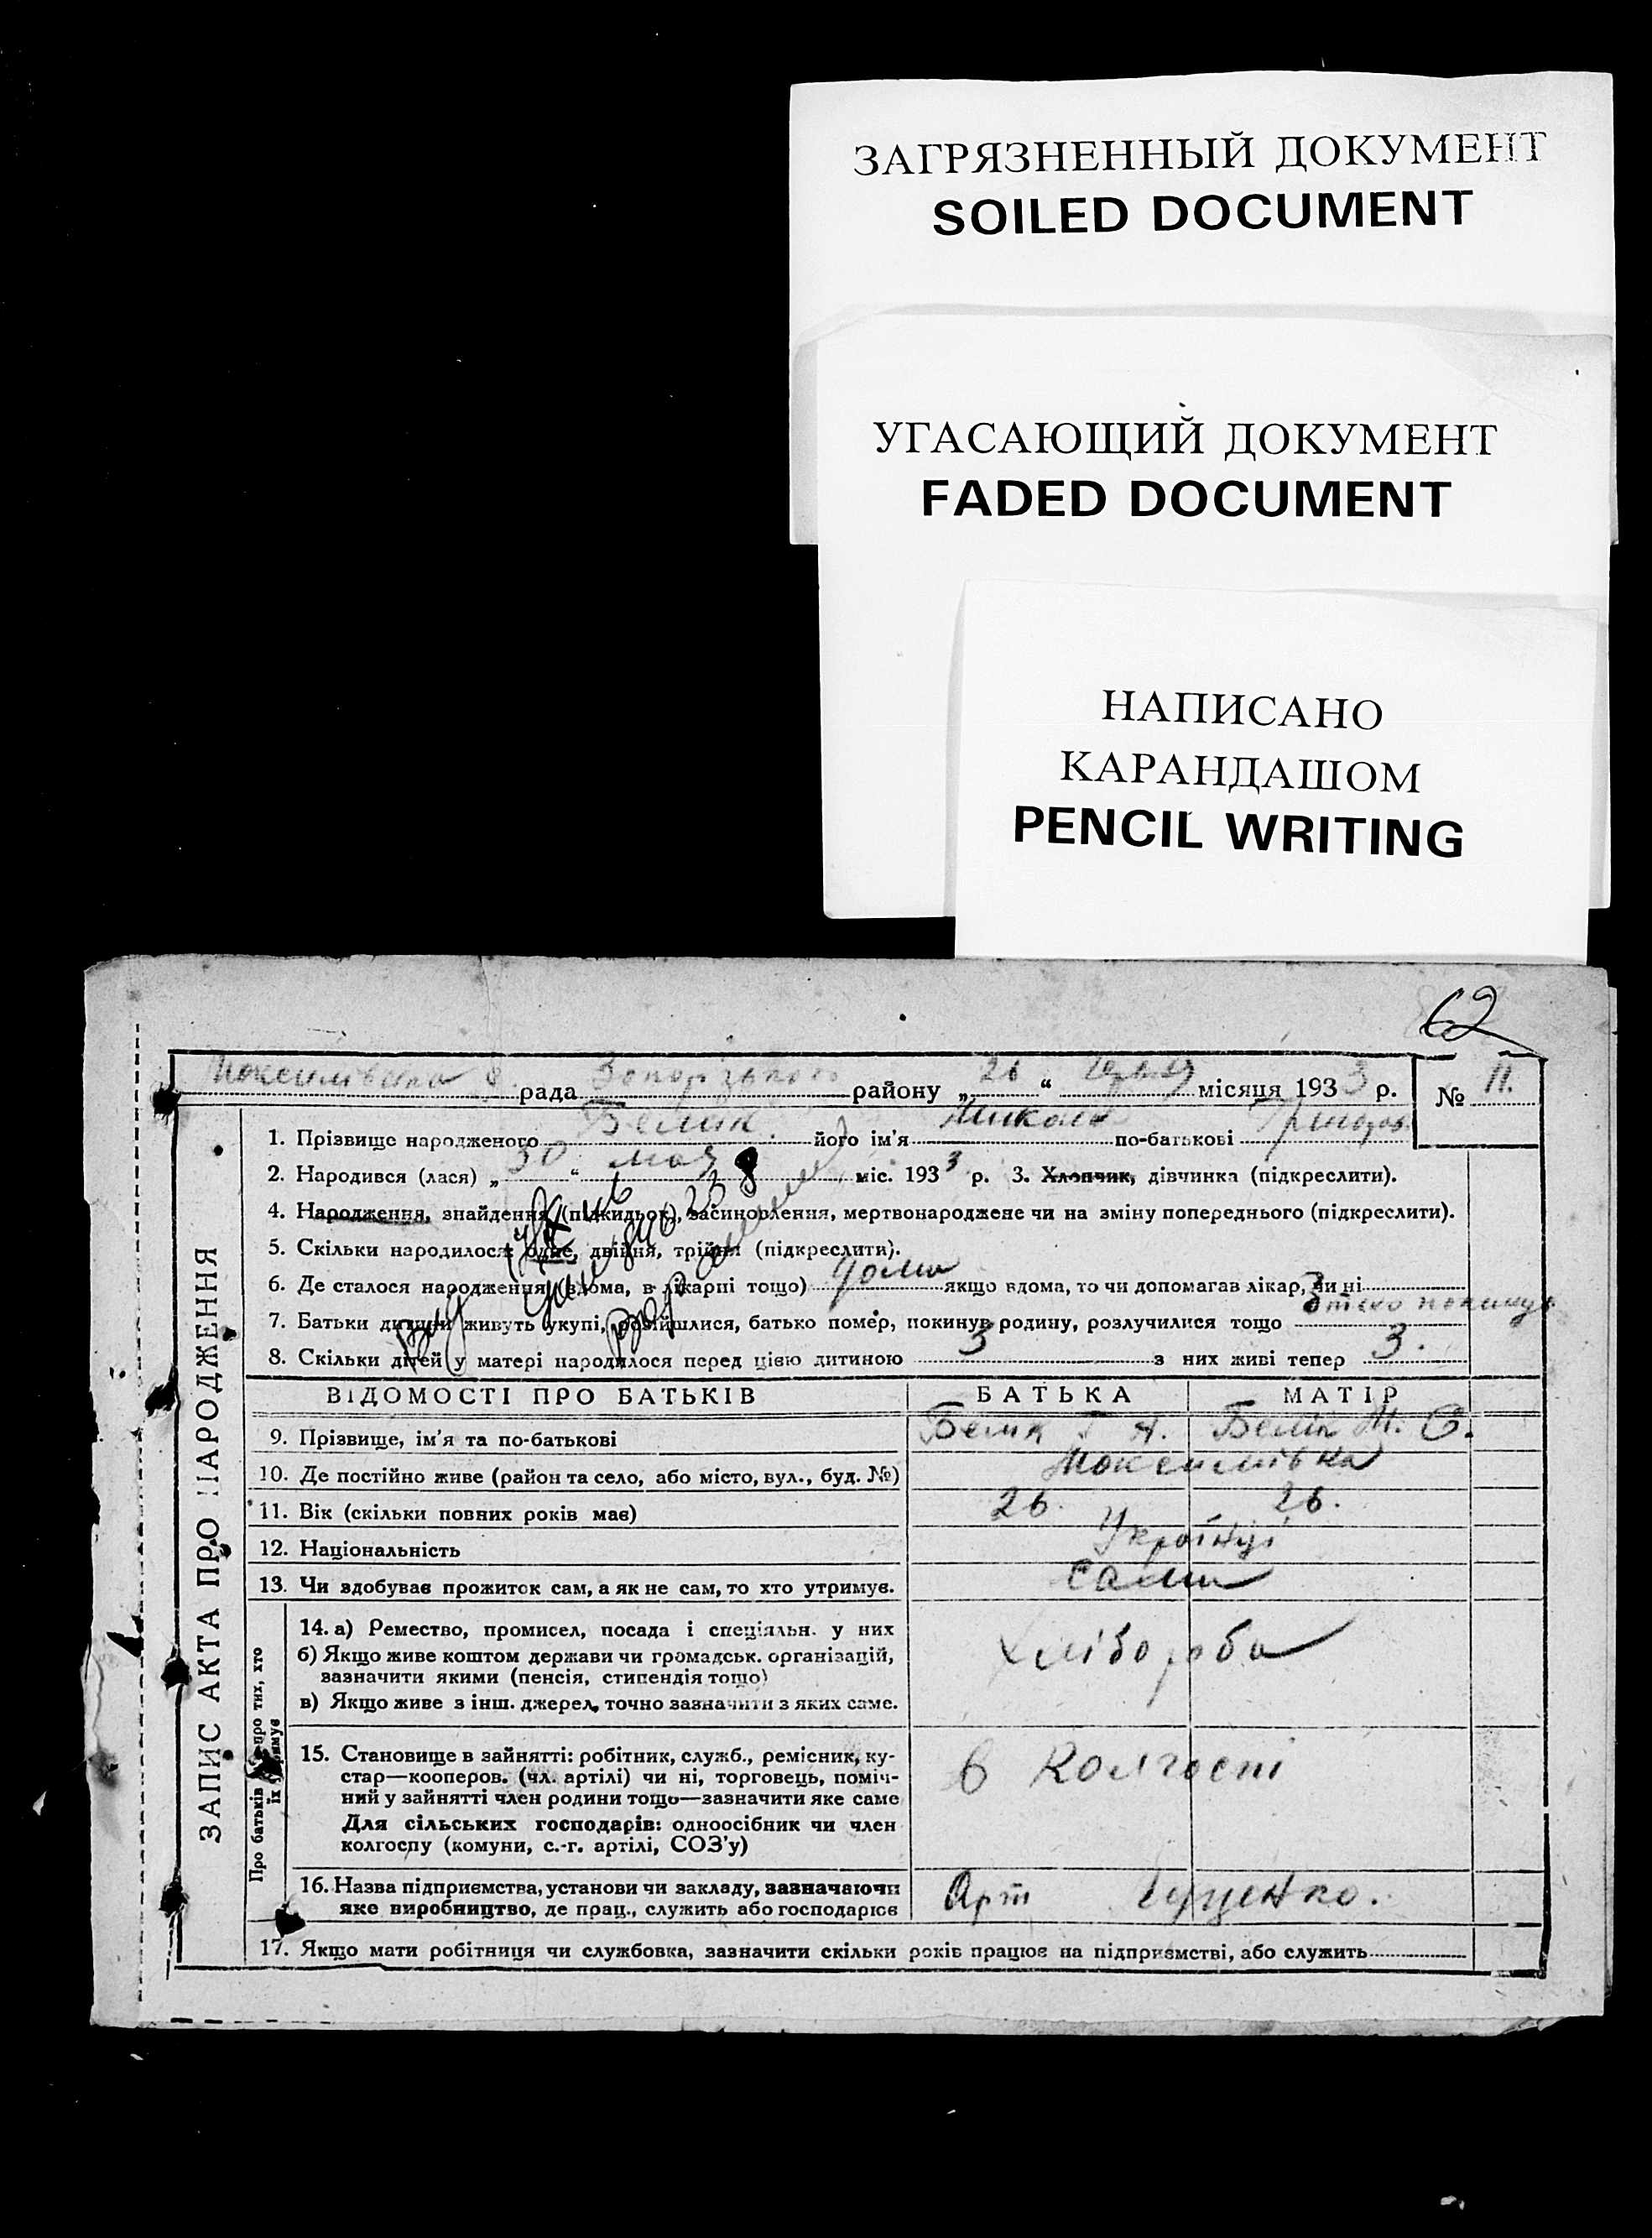 ЗАГРЯЗНЕННЫЙ ДОКУМЕНТ
SOILED DOCUMENT
УГАСАЮЩИЙ ДОКУМЕНТ
FADED DOCUMENT
НАПИСАНО
КАРАНДАШОМ
PENCIL WRITING
62
рада району „26“ місяця 1933 р. № 11.
1. Прізвище народженого Белик його ім'я Микола по-батькові
2. Народився (лася) „30“ мая міс. 1933 р. 3. Хлопчик, дівчинка (підкреслити).
4. Народження, знайдення (підкидьок), засиновлення, мертвонароджене чи на зміну попереднього (підкреслити).
5. Скільки народилося: одне, двійня, трійня (підкреслити).
6. Де сталося народження (вдома, в лікарні тощо) дома якщо вдома, то чи допомагав лікар, чи ні
7. Батьки дитини живуть укупі, розійшлися, батько помер, покинув родину, розлучилися тощо
8. Скільки дітей у матері народилося перед цією дитиною 3 з них живі тепер 3.
ЗАПИС АКТА ПРО НАРОДЖЕННЯ
ВІДОМОСТІ ПРО БАТЬКІВ БАТЬКА МАТІР
9. Прізвище, ім'я та по-батькові Белик Г Н. Белик М. С.
10. Де постійно живе (район та село, або місто, вул., буд. №)
11. Вік (скільки повних років має) 26. 26.
12. Національність Українці
13. Чи здобував прожиток сам, а як не сам, то хто утримує. сами
Про батьків про тих, хто
їх утримує
14. а) Ремество, промисел, посада і спеціяльн. у них
б) Якщо живе коштом держави чи громадськ. організацій,
зазначити якими (пенсія, стипендія тощо)
в) Якщо живе з інш. джерел, точно зазначити з яких саме.
15. Становище в зайнятті: робітник, служб., ремісник, ку-
стар—кооперов. (чл. артілі) чи ні, торговець, поміч-
ний у зайнятті член родини тощо—зазначити яке саме
в колгоспі
Для сільських господарів: одноосібник чи член
колгоспу (комуни, с.-г. артілі, СОЗ'у)
16. Назва підприємства, установи чи закладу, зазначаючи
яке виробництво, де прац., служить або господарює Арт
17. Якщо мати робітниця чи службовка, зазначити скільки років працює на підприємстві, або служить